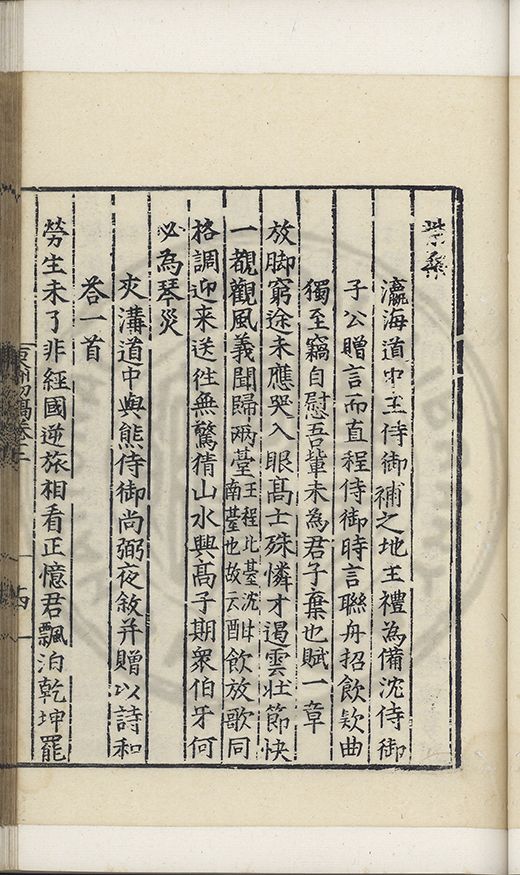 紫桑
瀛海道中王侍御補之地主禮為備沈侍御
子公贈言而直程侍御時言聯舟招飲欵曲
獨至竊自慰吾輩未為君子棄也賦一章
放脚窮途未應哭入眼高士殊憐才遏雲壮節快
一覩觀風義聞歸兩臺王程北臺沈
南臺也故云酣飲放歌同
格調迎来送往無驚猜山水興高子期衆伯牙何
必為琴災
夾溝道中與熊侍御尚弼夜敘并贈以詩和
荅一首
勞生未了非經國逆旅相看正憶君飄泊乾坤罷
初稿卷二